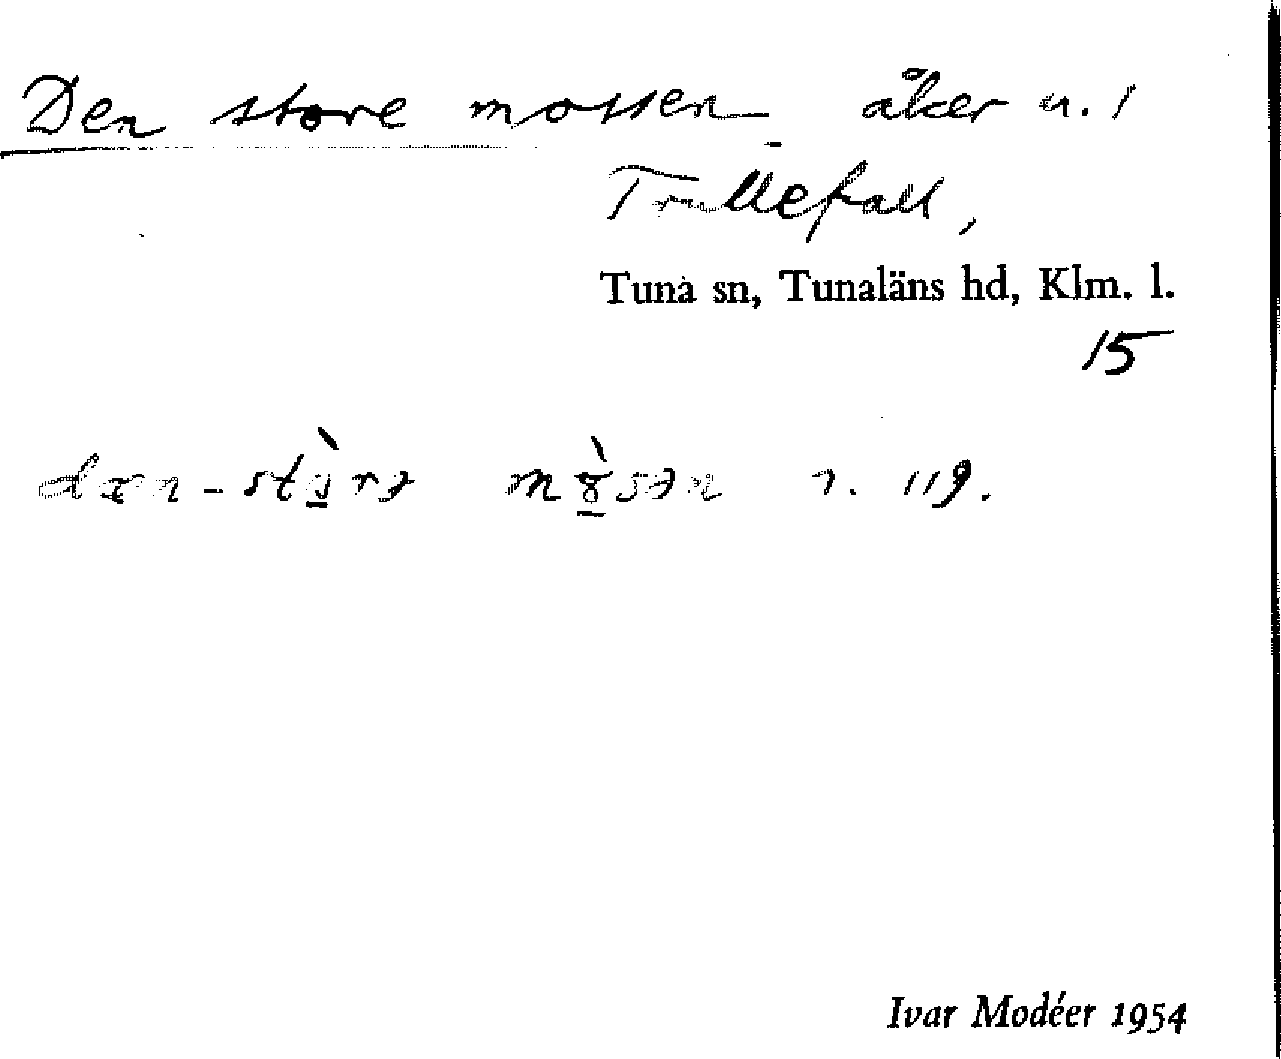 Den store mossen åker u. /
Trullefall,
Tuna sn, Tunaläns hd, Klm. l.
15
n. 119.
Ivar Modéer 1954